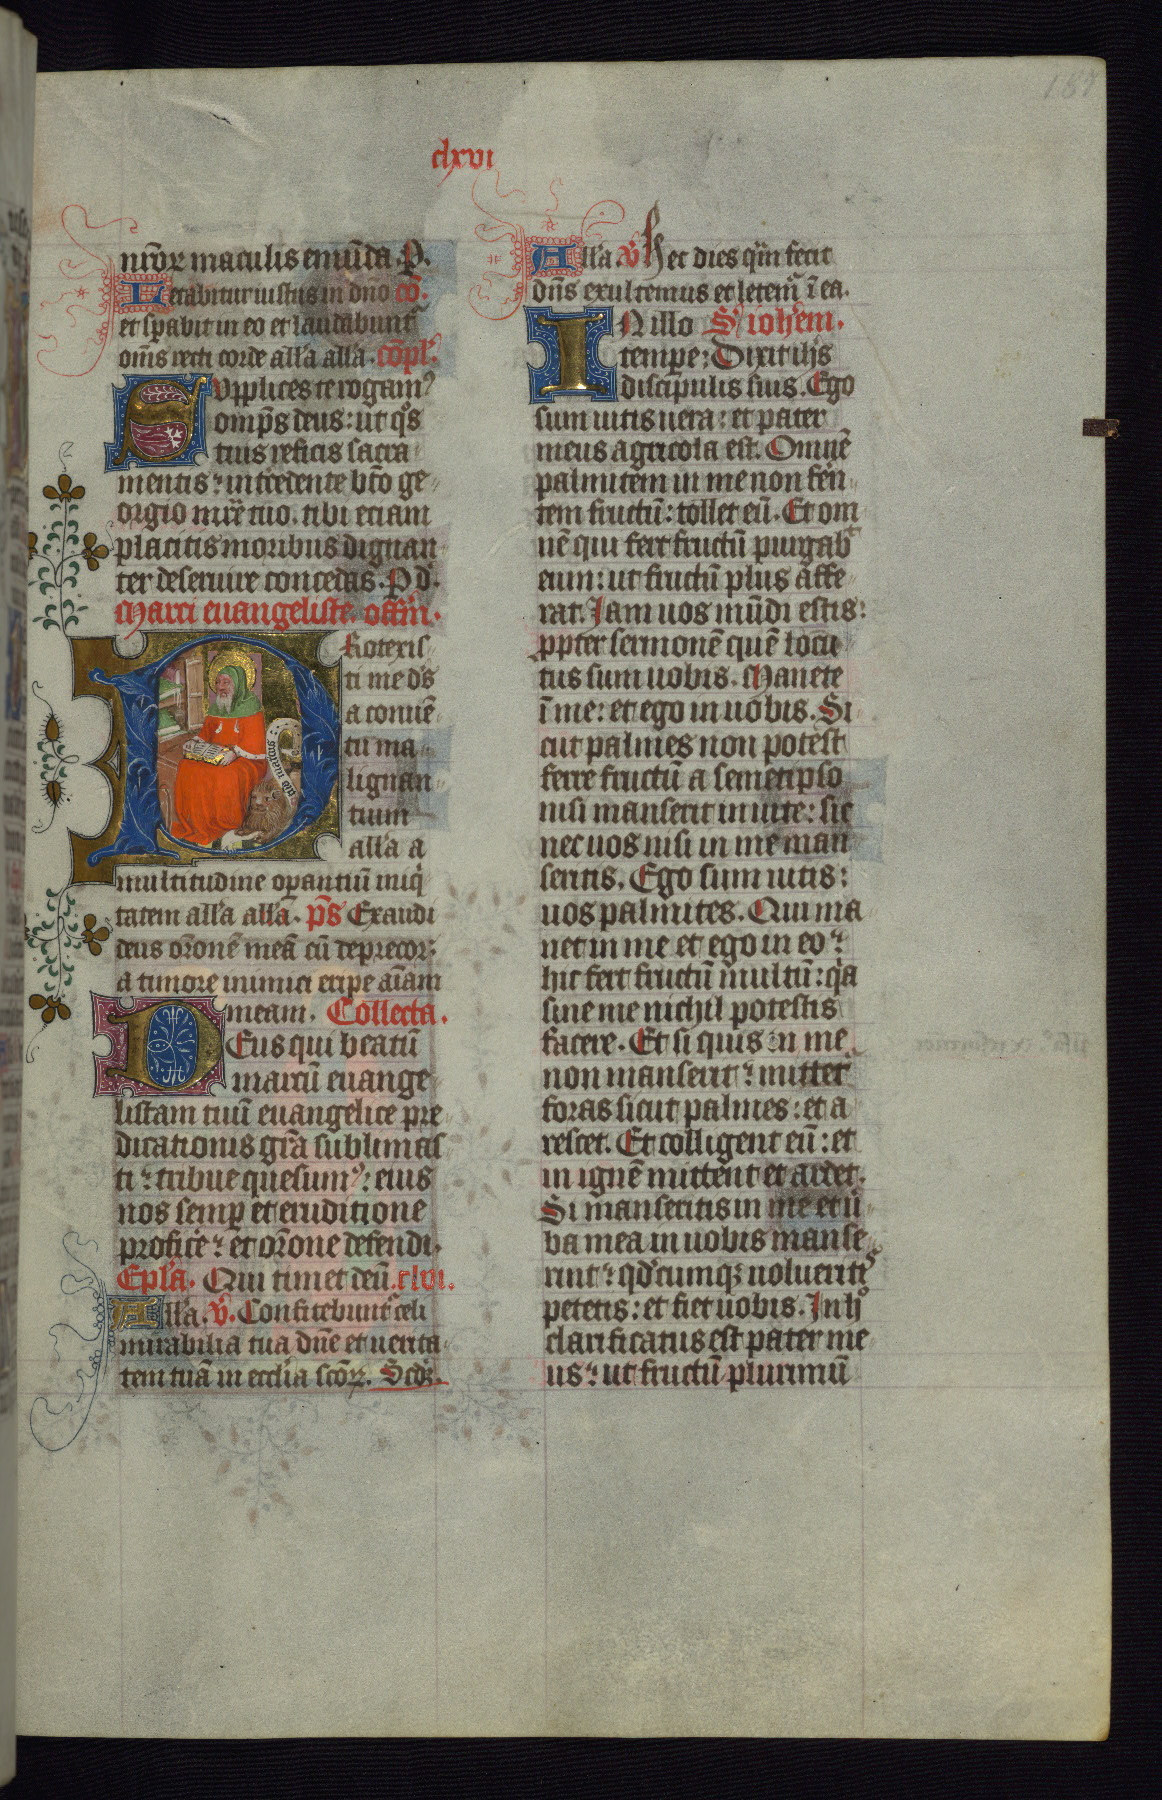 clxvi
nr̄oꝝ maculis emūda. P.
Letabitur iustus in dn̄o cō.
et sꝑabit in eo et laudabunt᷑
om̄s recti corde all'a all'a. cōpl'.
Supplices te rogam⁹
omp̄s deus: ut q°s
tuis reficis sacra
mentis: int̄cedente bt̄o ge
orgio mr̄e tuo. tibi etiam
placitis moribus dignan
ter deseruire concedas. P d.
Marci euangeliste. offm̄.
Protexis
ti me d's
a conuē
tu ma
lignan
tium
all'a a
multitudine oꝑantiū iniq
tatem all'a all'a. p̄s Exaudi
deus or̄onē meā cū deprecor:
a timore inimici eripe aīam
meam. Collecta.
Deus qui beatū
marcū euange
listam tuū euangelice pre
dicationis gr̄a sublimas
ti: tribue quesum⁹: eius
nos semꝑ et eruditione
proficē: et or̄one defendi.
Epl'a. Qui timet deū. clvi.
All'a. v̄. Confitebunt᷑ celi
mirabilia tua dn̄e et uerita
tem tuā in eccl'ia scōꝝ. Scdꝫ
All'a. v̄ hec dies q̄m fecit
dn̄s exultemus et letem᷑ ī ea.
IN illo S' ioh'em.
tempe: Dixit ih's
discipulis suis. Ego
sum uitis uera: et pater
meus agricola est. Omnē
palmitem in me non feren
tem fructū: tollet eū. Et om
nē qui fert fructū purgabit
eum: ut fructū plus affe
rat. Jam uos mūdi estis:
ꝓpter sermonē quē locu
tus sum uobis. Manete
ī me: et ego in uobis. Si
cut palmes non potest
ferre fructū a semetipso
nisi manserit in uite: sic
nec uos nisi in me man
seritis. Ego sum uitis:
uos palmites. Qui ma
net in me et ego in eo:
hic fert fructū multū: q̄a
sine me nichil potestis
facere. Et si quis in me
non manserit: mittet᷑
foras sicut palmes: et a
rescet. Et colligent eū: et
in ignē mittent et ardet.
Si manseritis in me et ū
ba mea in uobis manse
rint: qd'cumqꝫ uoluerit⁹
petetis: et fiet uobis. In h°
clarificatus est pater me
us: ut fructū plurimū